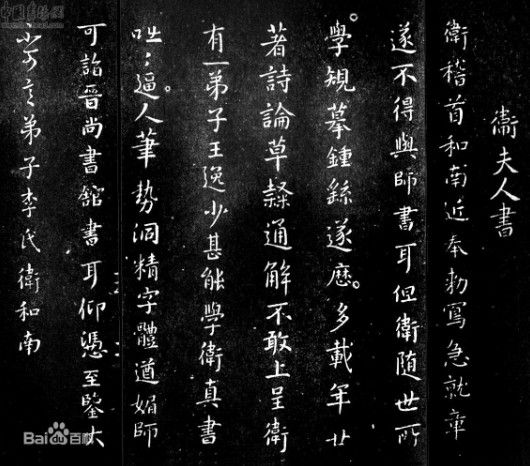 衛夫人書
衛稽首和南近奉勑寫急就章
遂不得與師書耳但衛隨世所
學規摹鍾繇遂歷多載年廿
著詩論草隸通解不敢上呈衛
有一弟子王逸少甚能學衛真書
咄咄逼人筆勢洞精字體遒媚師
可詣晉尚書館書耳仰憑至鑒大
不可言弟子李氏衛和南
Bai百科